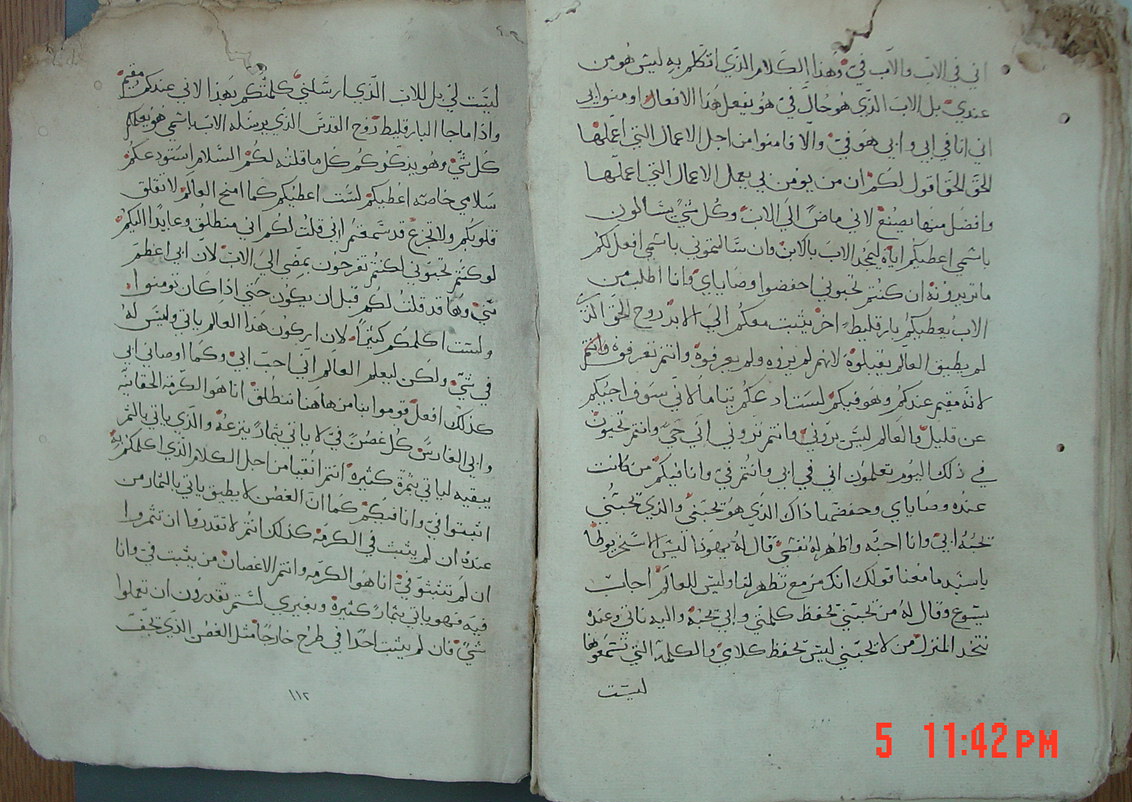 اني في الاب والاب فيّ وهذا الكلام الذي اتكلم به ليس هو من
عندي بل الاب الذي هو حال فيّ هو يفعل هذا الافعال اومنوا بي
اني انا في ابي وابي هو فيّ والا فامنوا من اجل الاعمال التي اعملها
الحق الحق اقول لكم ان من يومن بي يعمل الاعمال التي اعملها
وافضل منها يصنع لاني ماضٍ الى الاب وكل شي تسالون
باسمي اعطيكم اياه ليمجد الاب بالابن وان سالتموني باسمي افعل لكم
ما تريدونه ان كنتم تحبوني احفضوا وصاياي وانا اطلب من
الاب يعطيكم بارقليط اخر يثبت معكم الى الابد روح الحق الذي
لم يطيق العالم يقبلوه لانهم لم يروه ولم يعرفوه وانتم تعرفوه وانتم
لانه مقيم عندكم وهو فيكم لست ادعكم يتاما لاني سوف اجيكم
عن قليل والعالم ليس يروني وانتم تروني اني حي وانتم تحيون
في ذلك اليوم تعلمون اني في ابي وانتم فيّ وانا فيكم من كانت
عنده وصاياي وحفضها ذاك الذي هو يحبني والذي يحبني
يحبه ابي وانا احبه واظهر له نفسي قال له يهوذا ليس الاسخريوطا
يا سيد ما معنا قولك انك مزمع تظهر لنا وليس للعالم اجاب
يسوع وقال له من يحبني يحفظ كلمتي وابي يحبه واليه ناتي وعنده
نتخد المنزل من لا يحبني ليس يحفظ كلامي والكلمة التي تسمعوها
ليست
ليست لي بل للاب الذي ارسلني كلمتكم بهذا لاني عندكم مقيم
واذا ما جا البارقليط روح القدس الذي يرسله الاب باسمي هو يعلمكم
كل شي وهو يذكركم كل ما قلته لكم السلام استودعكم
سلامي خاصة اعطيكم لست اعطيكم كما امنح العالم لا تقلق
قلوبكم ولا تجزع قد سمعتم اني قلت لكم اني منطلق وعايدا اليكم
لو كنتم تحبوني لكنتم تفرحون بمضي الى الاب لان ابي اعظم
مني وها قد قلت لكم قبل ان يكون حتى اذا كان تومنوا
ولست اكلمكم كثيرا لان اركون هذا العالم ياتي وليس له
في شي ولكن ليعلم العالم اني احب ابي وكما اوصاني ابي
كذلك افعل قوموا بنا من هاهنا ننطلق انا هو الكرمة الحقانية
وابي الغارس كل غصن فيّ لا ياتي بثمار ينزعه والذي ياتي بالثمر
ينقيه لياتي بثمرة كثيرة انتم انقيا من اجل الكلام الذي اكلمكم به
اثبتوا فيّ وانا فيكم كما ان الغصن لا يطيق ياتي بالثمار من
عنده ان لم يثبت في الكرمة كذلك انتم لا تقدروا ان تثمروا
ان لم تثبتوا فيّ انا هو الكرمة وانتم الاغصان من يثبت فيّ وانا
فيه فهو ياتي بثمار كثيرة وبغيري لستم تقدرون ان تعملوا
شي فان لم يثبت احدا في طرح خارجا مثل الغصن الذي يجف
١١٢
5 11:42 PM